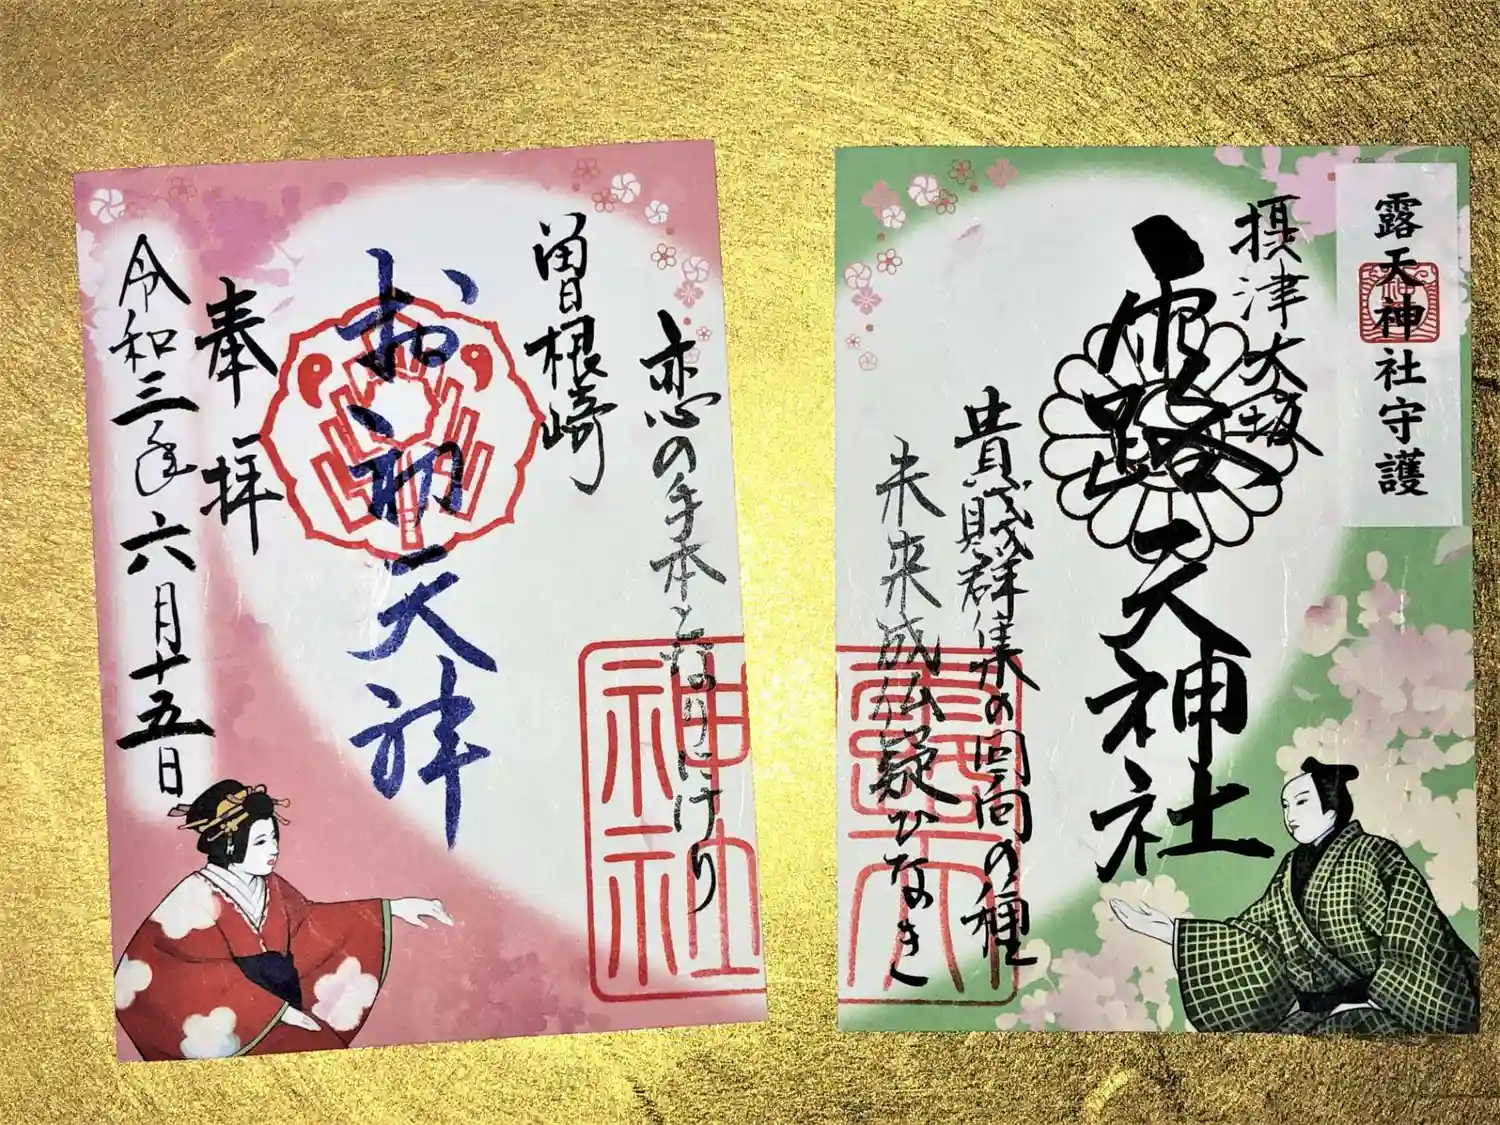 露天神社守護
摂津大坂
露天神社
貴賎群集の回向の種
未来成仏疑ひなき
恋の手本となりにけり
曽根崎
お初天神
奉拝
令和三年六月十五日
神社
露天